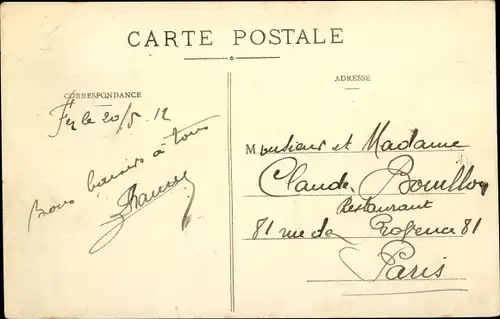 CARTE POSTALE
CORRESPONDANCE
ADRESSE
Fez le 20/5 12
Bons baisers à tous
Monsieur et Madame
Claude Bouillon
Restaurant
81 rue de 81
Paris